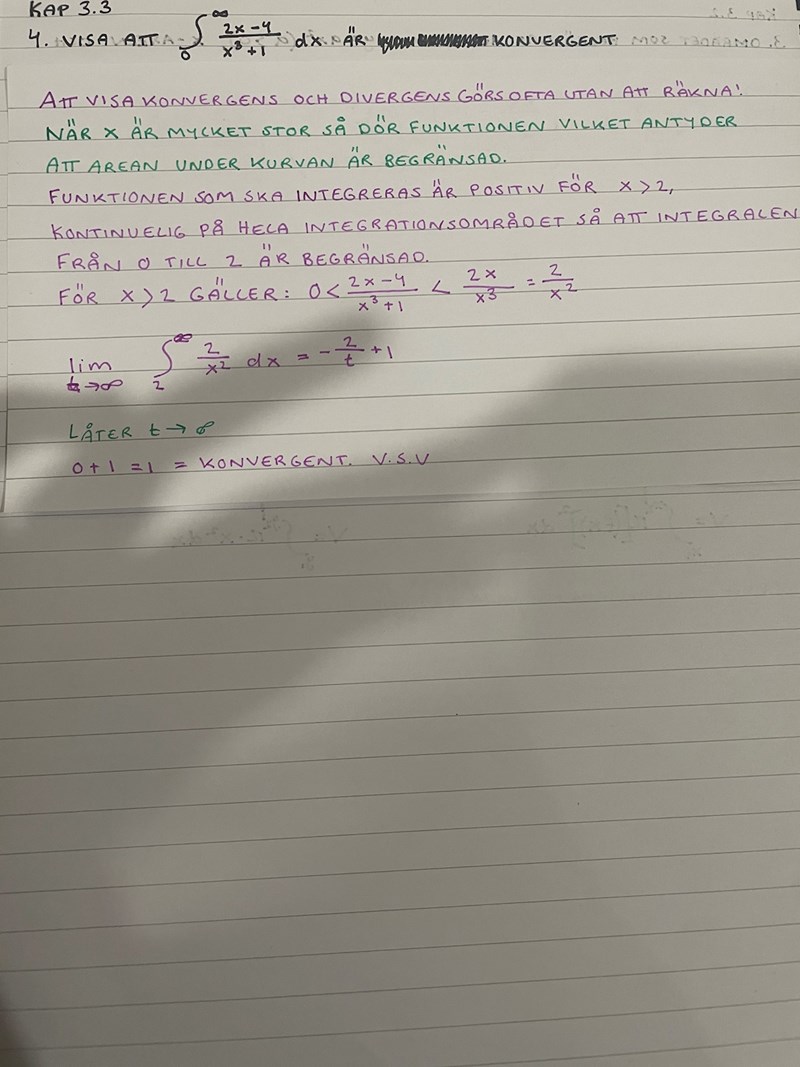 KAP 3.3
4. VISA ATT ∫₀^∞ (2x-4)/(x³+1) dx ÄR KONVERGENT
ATT VISA KONVERGENS OCH DIVERGENS GÖRS OFTA UTAN ATT RÄKNA!
NÄR X ÄR MYCKET STOR SÅ DÖR FUNKTIONEN VILKET ANTYDER
ATT AREAN UNDER KURVAN ÄR BEGRÄNSAD.
FUNKTIONEN SOM SKA INTEGRERAS ÄR POSITIV FÖR X>2,
KONTINUELIG PÅ HELA INTEGRATIONSOMRÅDET SÅ ATT INTEGRALEN
FRÅN 0 TILL 2 ÄR BEGRÄNSAD.
FÖR X>2 GÄLLER: 0 < (2x-4)/(x³+1) < 2x/x³ = 2/x²
lim t→∞ ∫₂^∞ 2/x² dx = -2/t + 1
LÅTER t→∞
0+1=1 = KONVERGENT. V.S.V